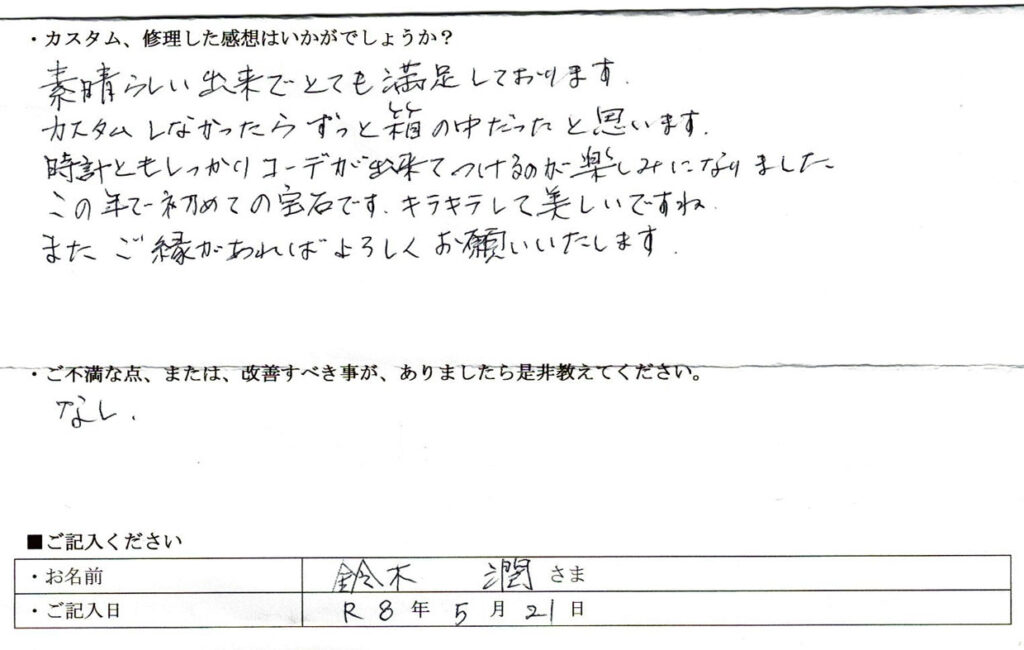 ・カスタム、修理した感想はいかがでしょうか？
素晴らしい出来でとても満足しております.
カスタムしなかったらずっと箱の中だったと思います.
時計ともしっかりコーデが出来てつけるのが楽しみになりました
この年で初めての宝石です.キラキラして美しいですね.
またご縁があればよろしくお願いいたします.
・ご不満な点、または、改善すべき事が、ありましたら是非教えてください。
なし.
■ご記入ください
・お名前 鈴木 潤 さま
・ご記入日 R 8 年 5 月 21 日